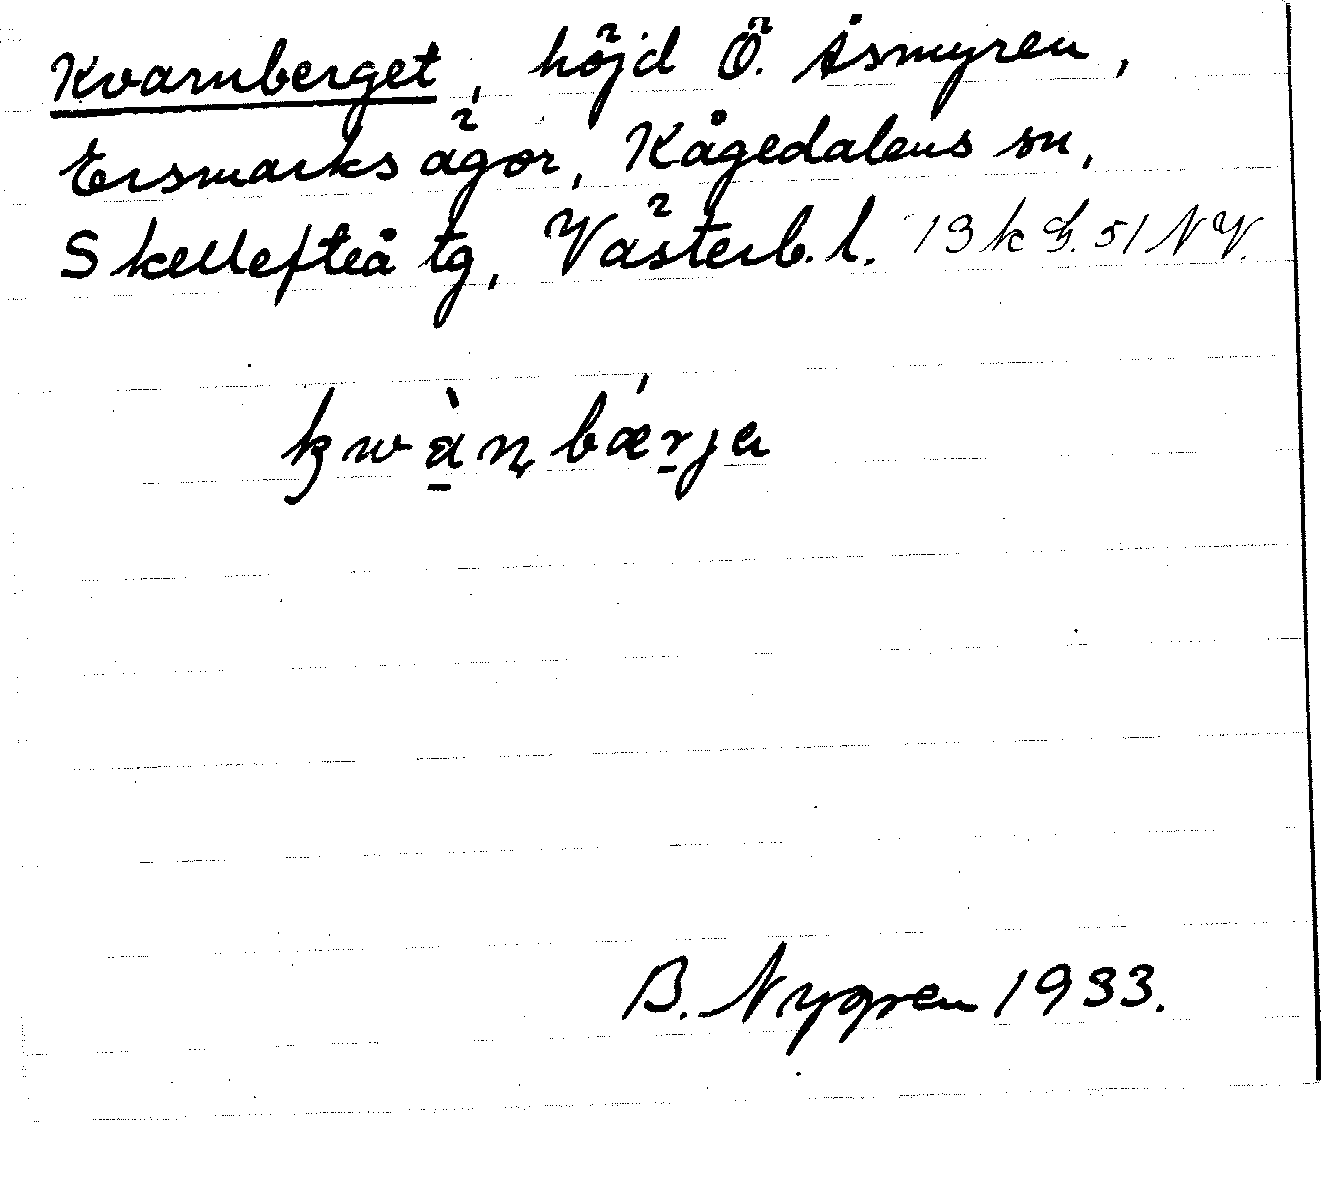 Kvarnberget, höjd Ö. Åsmyren,
Ersmarks ägor, Kågedalens sn,
Skellefteå tg, Västerb. l. 19 k S. 51 NV.
kwànbǽrja
B. Nygren 1933.